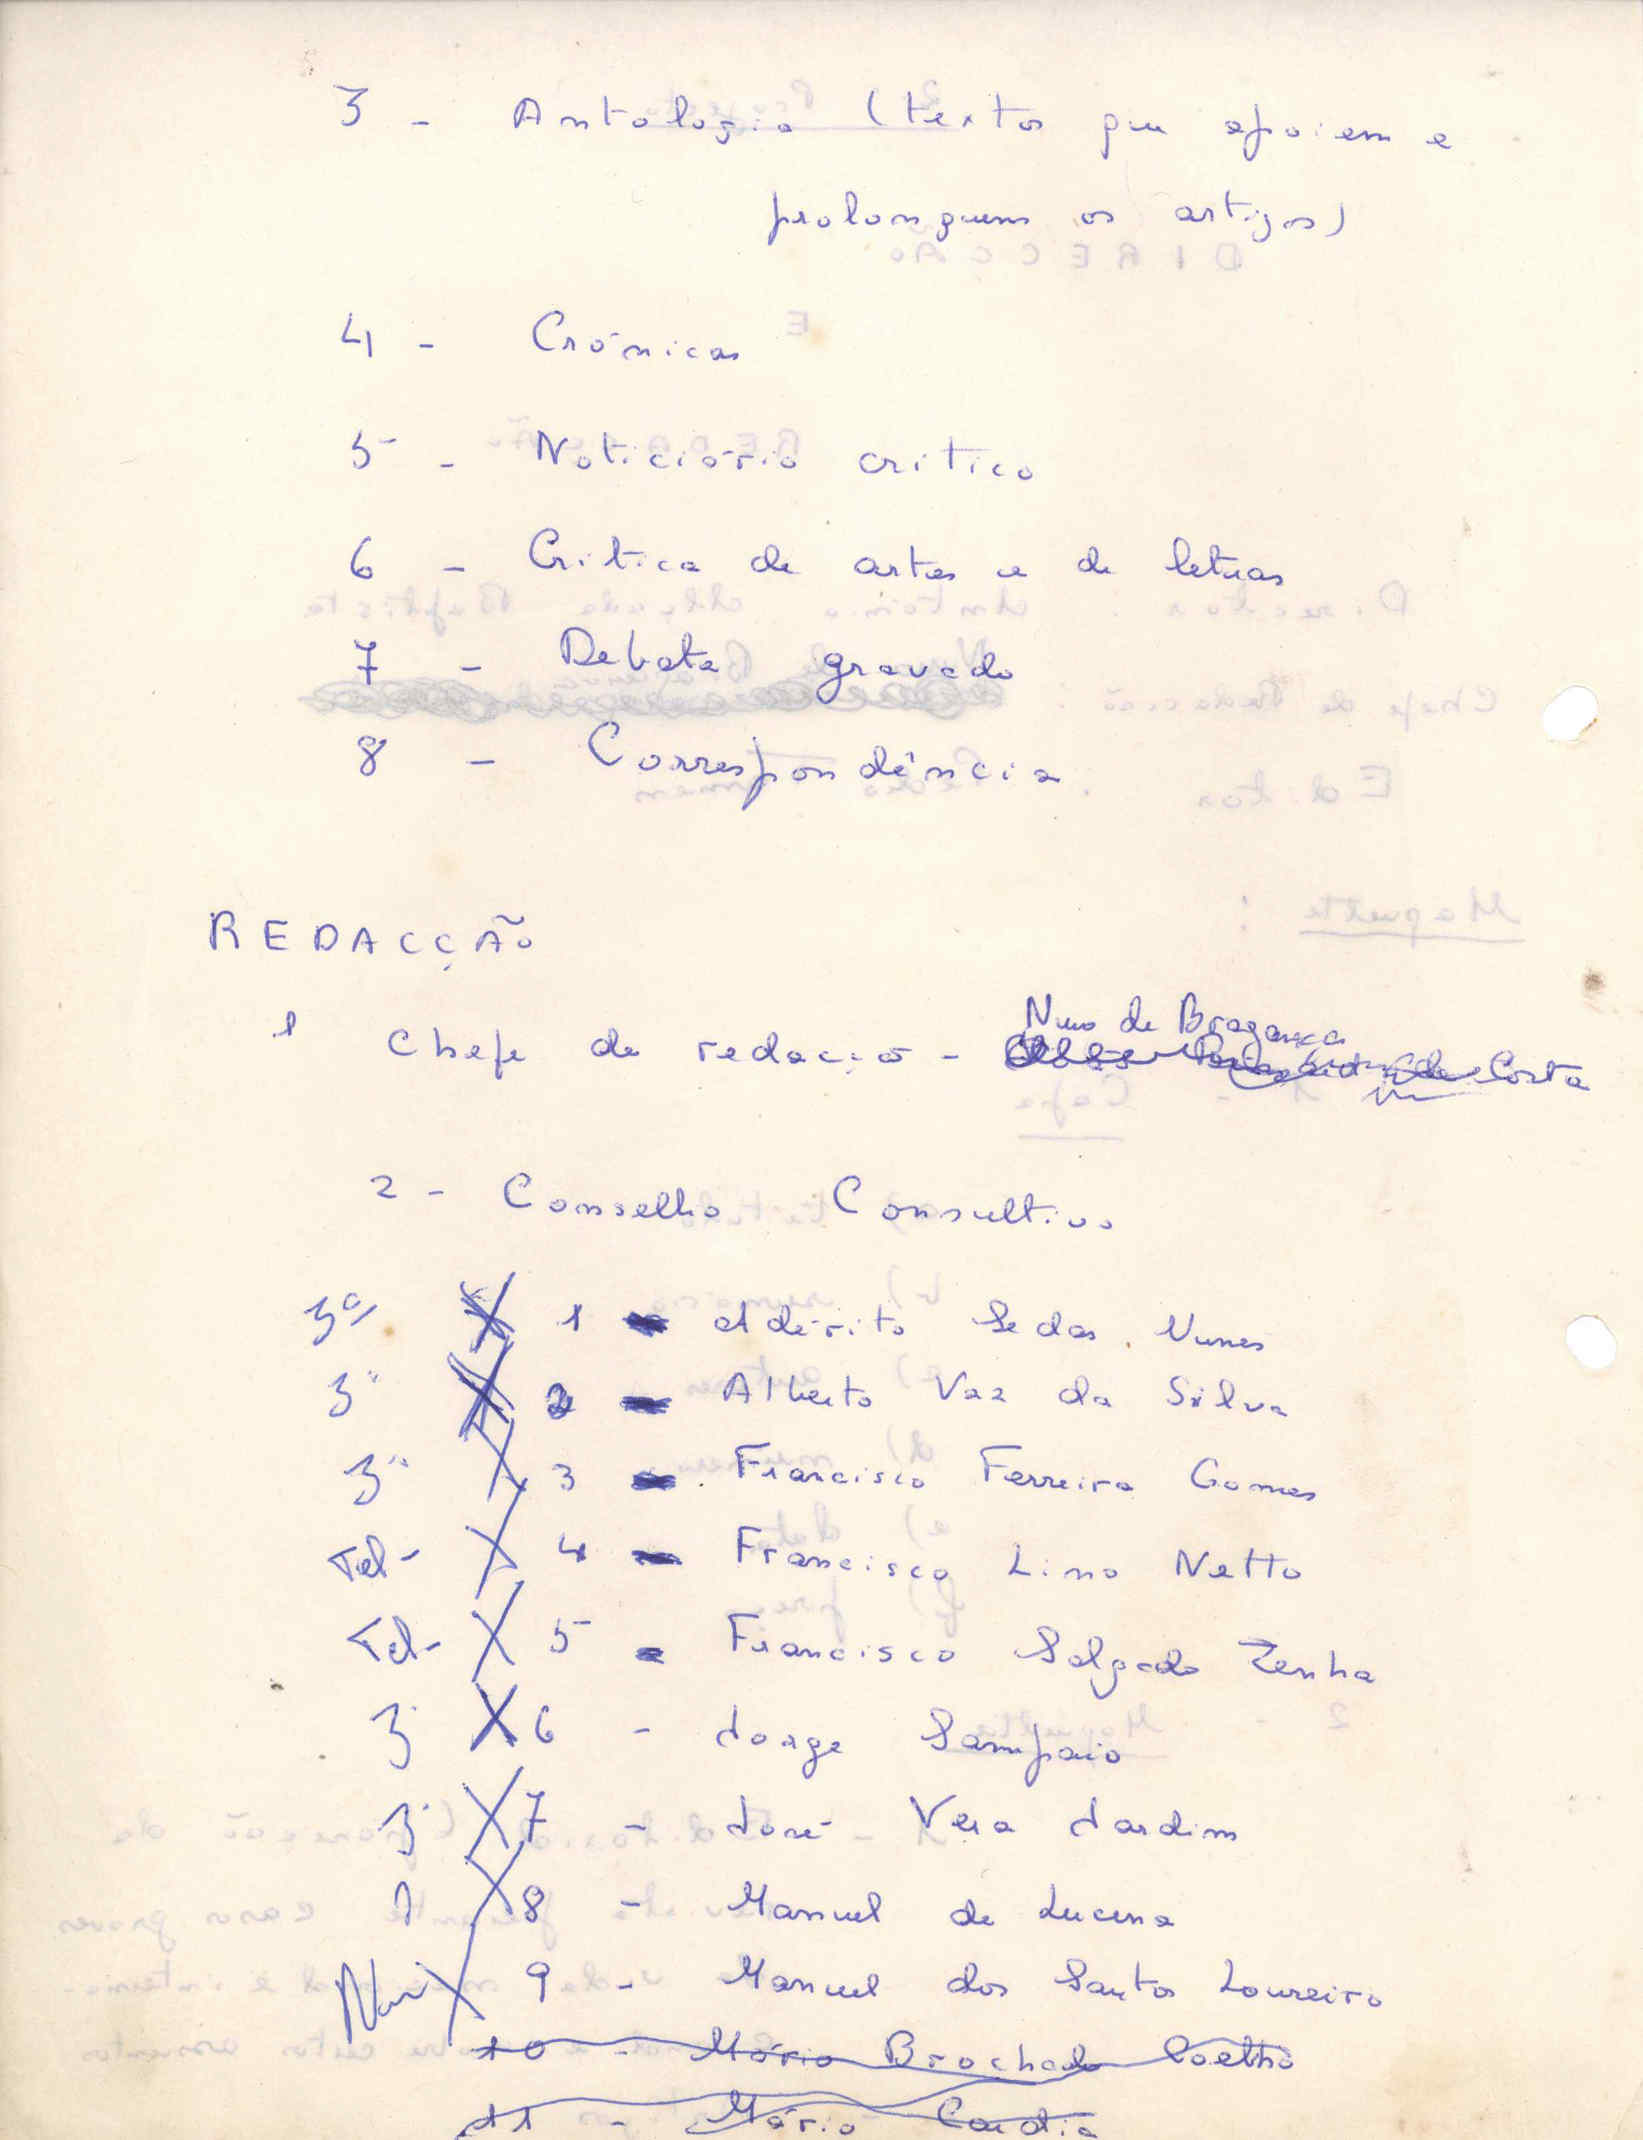 3 - Antologia (textos que apoiem e
prolonguem os artigos)
4 - Crónicas
5 - Noticiário crítico
6 - Crítica de artes e de letras
7 - Debate gravado
8 - Correspondência
REDACÇÃO
Nuno de Bragança
1 Chefe de redacção - da Costa
2 - Conselho Consultivo
3ª X 1 - Adérito Sedas Nunes
3ª X 2 - Alberto Vaz da Silva
3ª X 3 - Francisco Ferreira Gomes
Tel- X 4 - Francisco Lino Netto
Tel- X 5 - Francisco Salgado Zenha
3ª X 6 - Jorge Sampaio
3ª X 7 - José Vera Jardim
X 8 - Manuel de Lucena
X 9 - Manuel dos Santos Loureiro
10 - Mário Brochado Coelho
11 - Mário Cardia